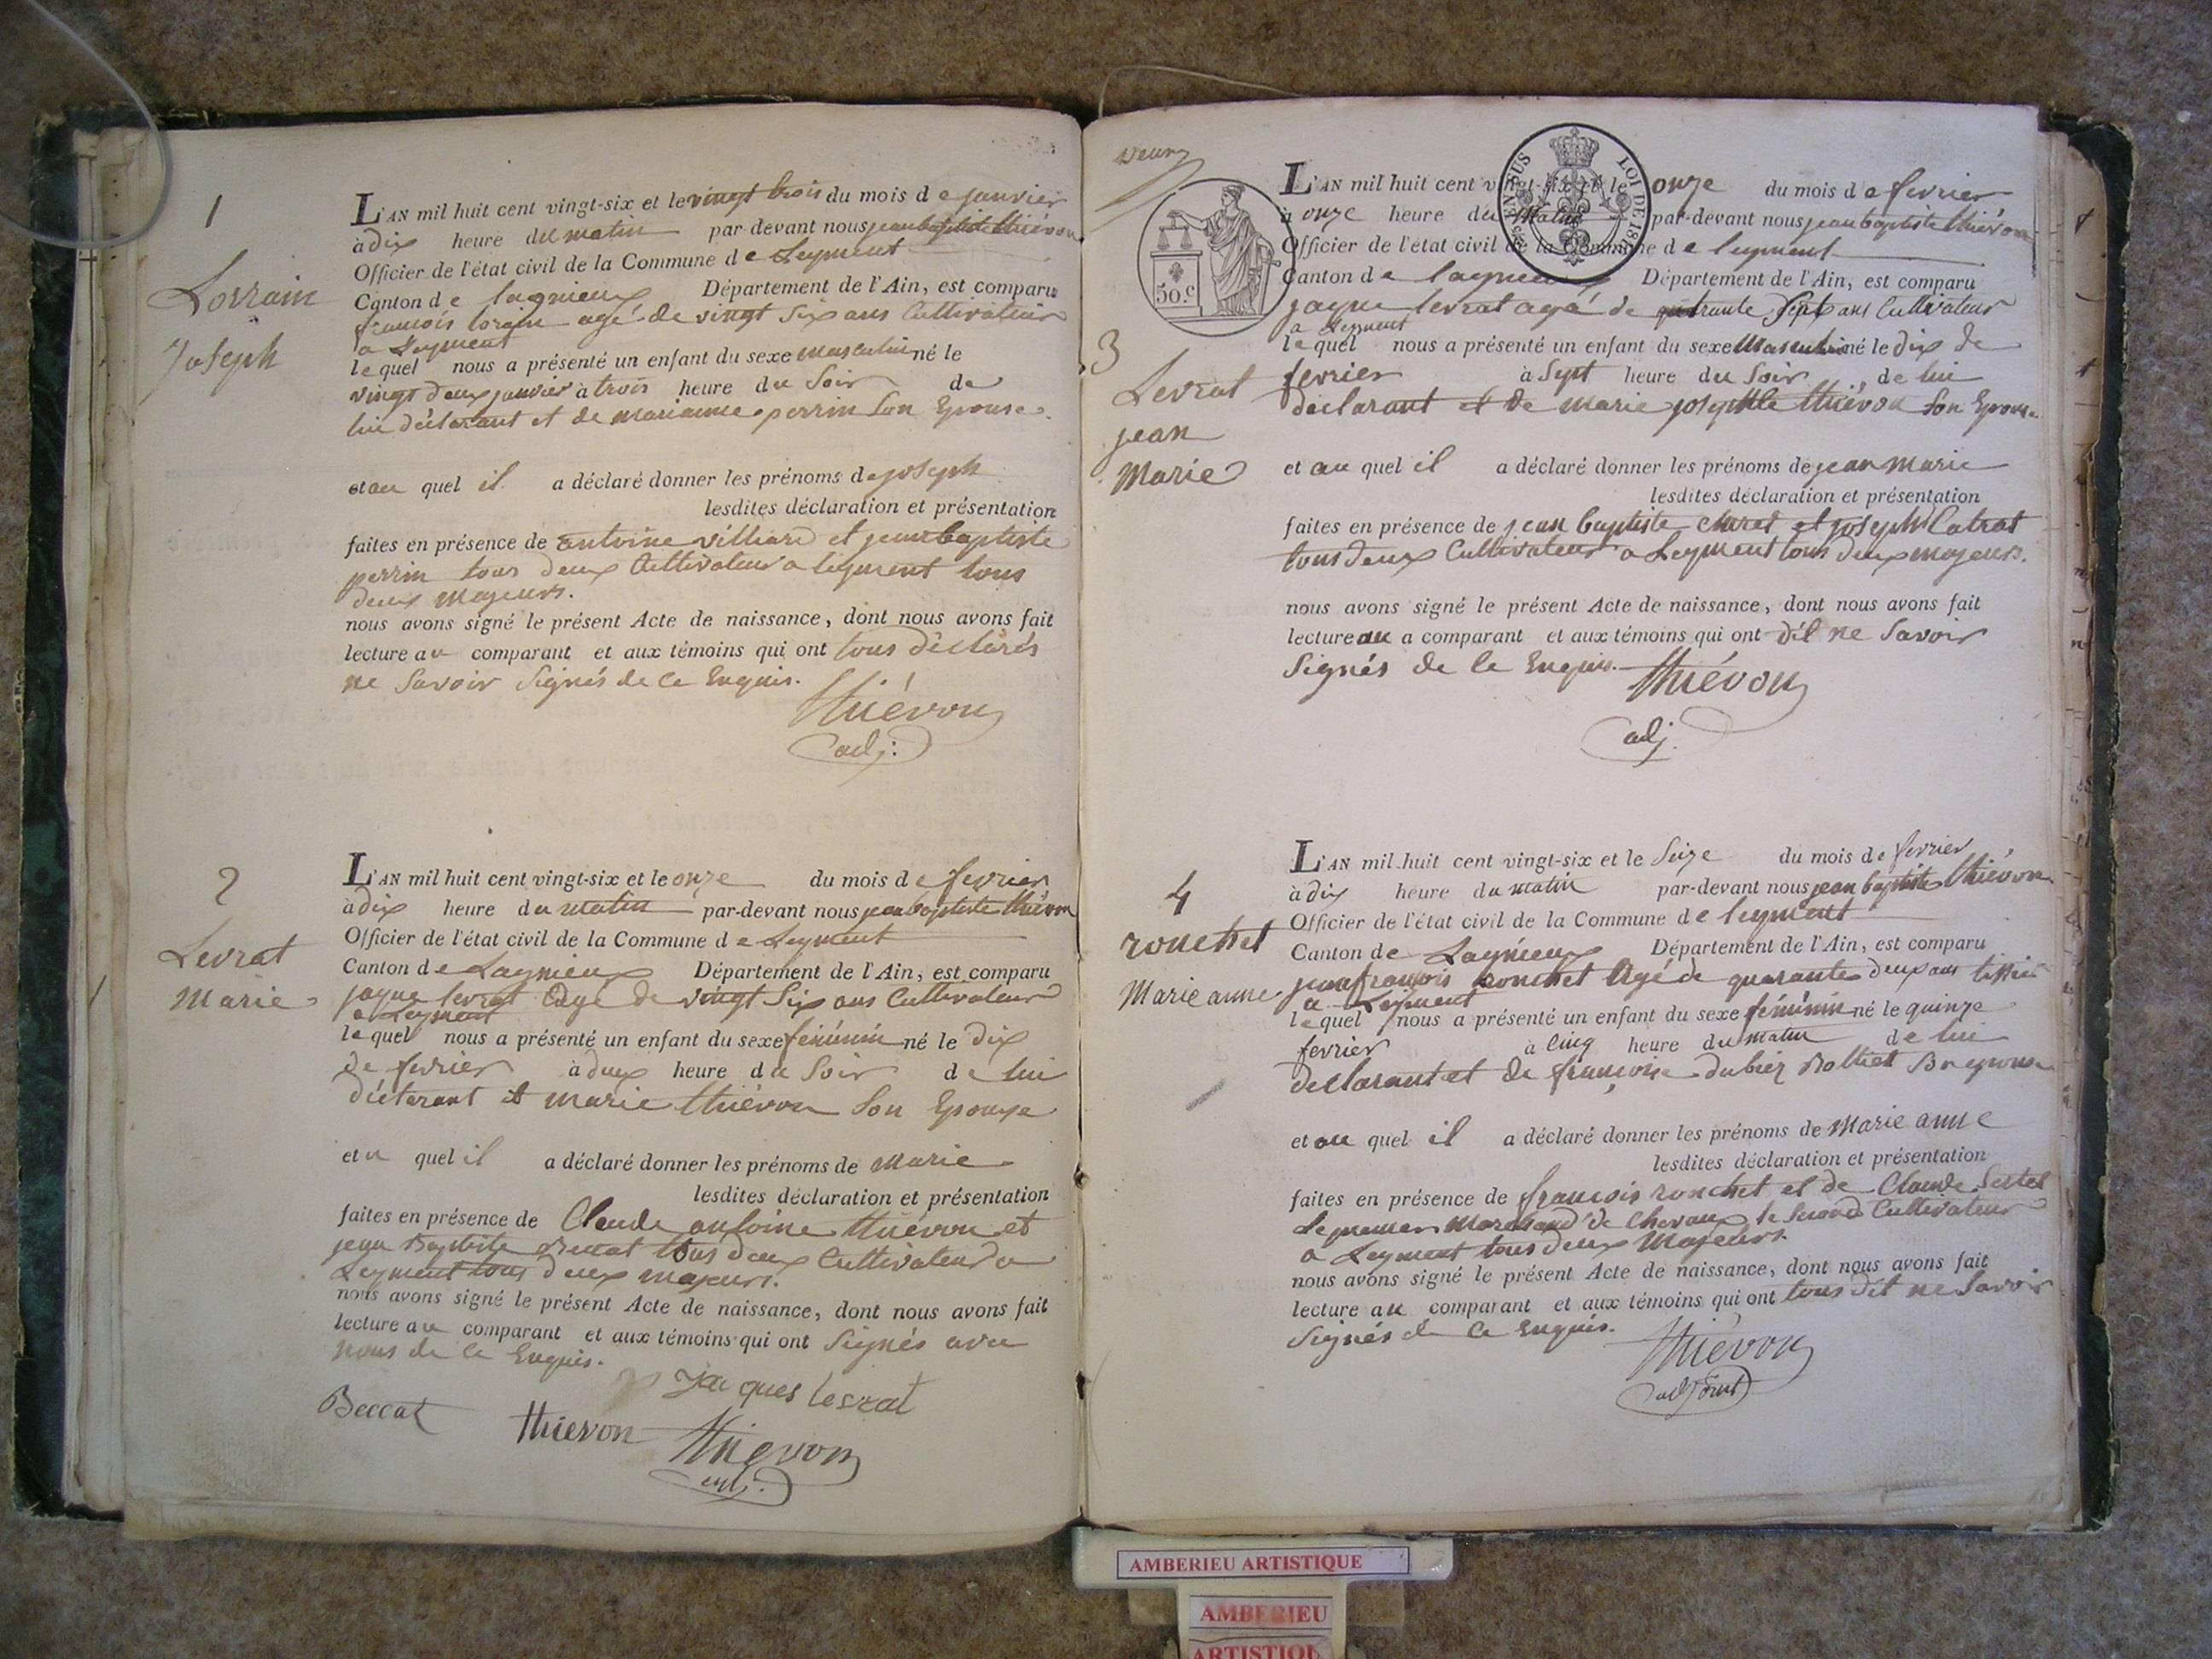 1
Lorrain
Joseph
L'AN mil huit cent vingt-six et le vingt trois du mois de janvier
à dix heure du matin par-devant nous jean baptiste thiévon
Officier de l'état civil de la Commune de Leyment
Canton de lagnieux Département de l'Ain, est comparu
francois lorain agé de vingt Six ans Cultivateur
a Leyment
lequel nous a présenté un enfant du sexe masculin né le
vingt deux janvier à trois heure du Soir de
lui déclarant et de marianne perrin Son Epouse.
et au quel il a déclaré donner les prénoms de joseph
lesdites déclaration et présentation
faites en présence de antoine villiard et jean baptiste
perrin tous deux Cultivateur a leyment tous
deux Majeurs.
nous avons signé le présent Acte de naissance, dont nous avons fait
lecture au comparant et aux témoins qui ont tous déclarés
ne Savoir Signés de ce Enquis.
thiévon
adj:
2
Levrat
Marie
L'AN mil huit cent vingt-six et le onze du mois de fevrier
à dix heure du matin par-devant nous jean baptiste thiévon
Officier de l'état civil de la Commune de Leyment
Canton de Lagnieux Département de l'Ain, est comparu
jaque levrat agé de vingt Six ans Cultivateur
a Leyment
lequel nous a présenté un enfant du sexe féminin né le dix
de fevrier à deux heure du Soir de lui
déclarant et marie thiévon Son Epouse
et u quel il a déclaré donner les prénoms de Marie
lesdites déclaration et présentation
faites en présence de Claude antoine thiévon et
jean Baptiste Beccat tous deux Cultivateur a
Leyment tous deux majeurs.
nous avons signé le présent Acte de naissance, dont nous avons fait
lecture au comparant et aux témoins qui ont Signés avec
nous de ce Enquis.
Jacques levrat
Beccat thievon thiévon
adj.
50.c
LOI DE 18
EN SUS
3
Levrat
jean
Marie
L'AN mil huit cent vingt-six et le onze du mois de fevrier
à onze heure du Matin par-devant nous jean baptiste thiévon
Officier de l'état civil de la Commune de leyment
Canton de lagnieux Département de l'Ain, est comparu
jaque levrat agé de quarante Sept ans Cultivateur
a Leyment
lequel nous a présenté un enfant du sexe Masculin né le dix de
fevrier à Sept heure du Soir de lui
déclarant et de marie josephte thiévon Son Epouse
et au quel il a déclaré donner les prénoms de jean marie
lesdites déclaration et présentation
faites en présence de jean baptiste et joseph
tous deux Cultivateur a Leyment tous deux majeurs.
nous avons signé le présent Acte de naissance, dont nous avons fait
lecture au a comparant et aux témoins qui ont dit ne Savoir
Signés de ce Enquis.
thiévon
adj.
4
ronchet
Marie anne
L'AN mil huit cent vingt-six et le Seize du mois de fevrier
à dix heure du matin par-devant nous jean baptiste thiévon
Officier de l'état civil de la Commune de leyment
Canton de Lagnieux Département de l'Ain, est comparu
jean françois ronchet Agé de quarante deux ans tissier
a Leyment
lequel nous a présenté un enfant du sexe féminin né le quinze
fevrier à Cinq heure du matin de lui
declarant et de françoise Son epouse
et au quel il a déclaré donner les prénoms de Marie anne
lesdites déclaration et présentation
faites en présence de françois ronchet et de Claude
Le premier Marchand de Chevaux le Second Cultivateur
a Leyment tous deux Majeurs.
nous avons signé le présent Acte de naissance, dont nous avons fait
lecture au comparant et aux témoins qui ont tous dit ne Savoir
Signés de ce Enquis.
thiévon
adjoint
AMBERIEU ARTISTIQUE
AMBERIEU
ARTISTIQU